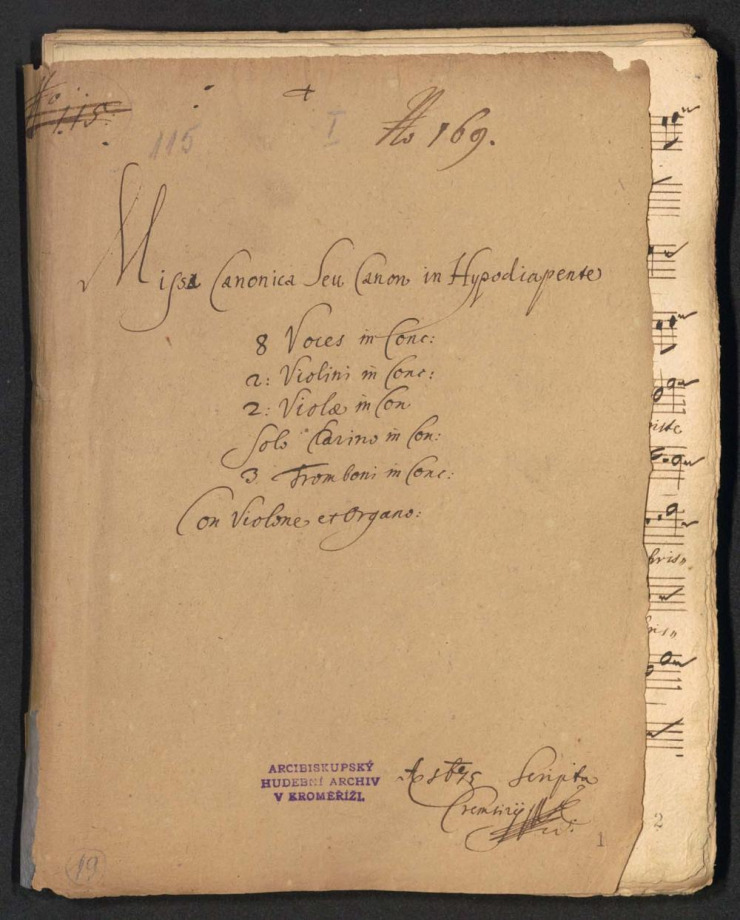 No 115
115 I No 169.
Missa Canonica Seu Canon in Hypodiapente
8 Voces in Conc:
2: Violini in Conc:
2: Violæ in Con
Solo Clarino in Con:
3 Tromboni in Conc:
Con Violone et Organo:
ARCIBISKUPSKÝ
HUDEBNÍ ARCHIV
V KROMĚŘÍŽI.
Scripta
Cremsirij
1
2
19
iste